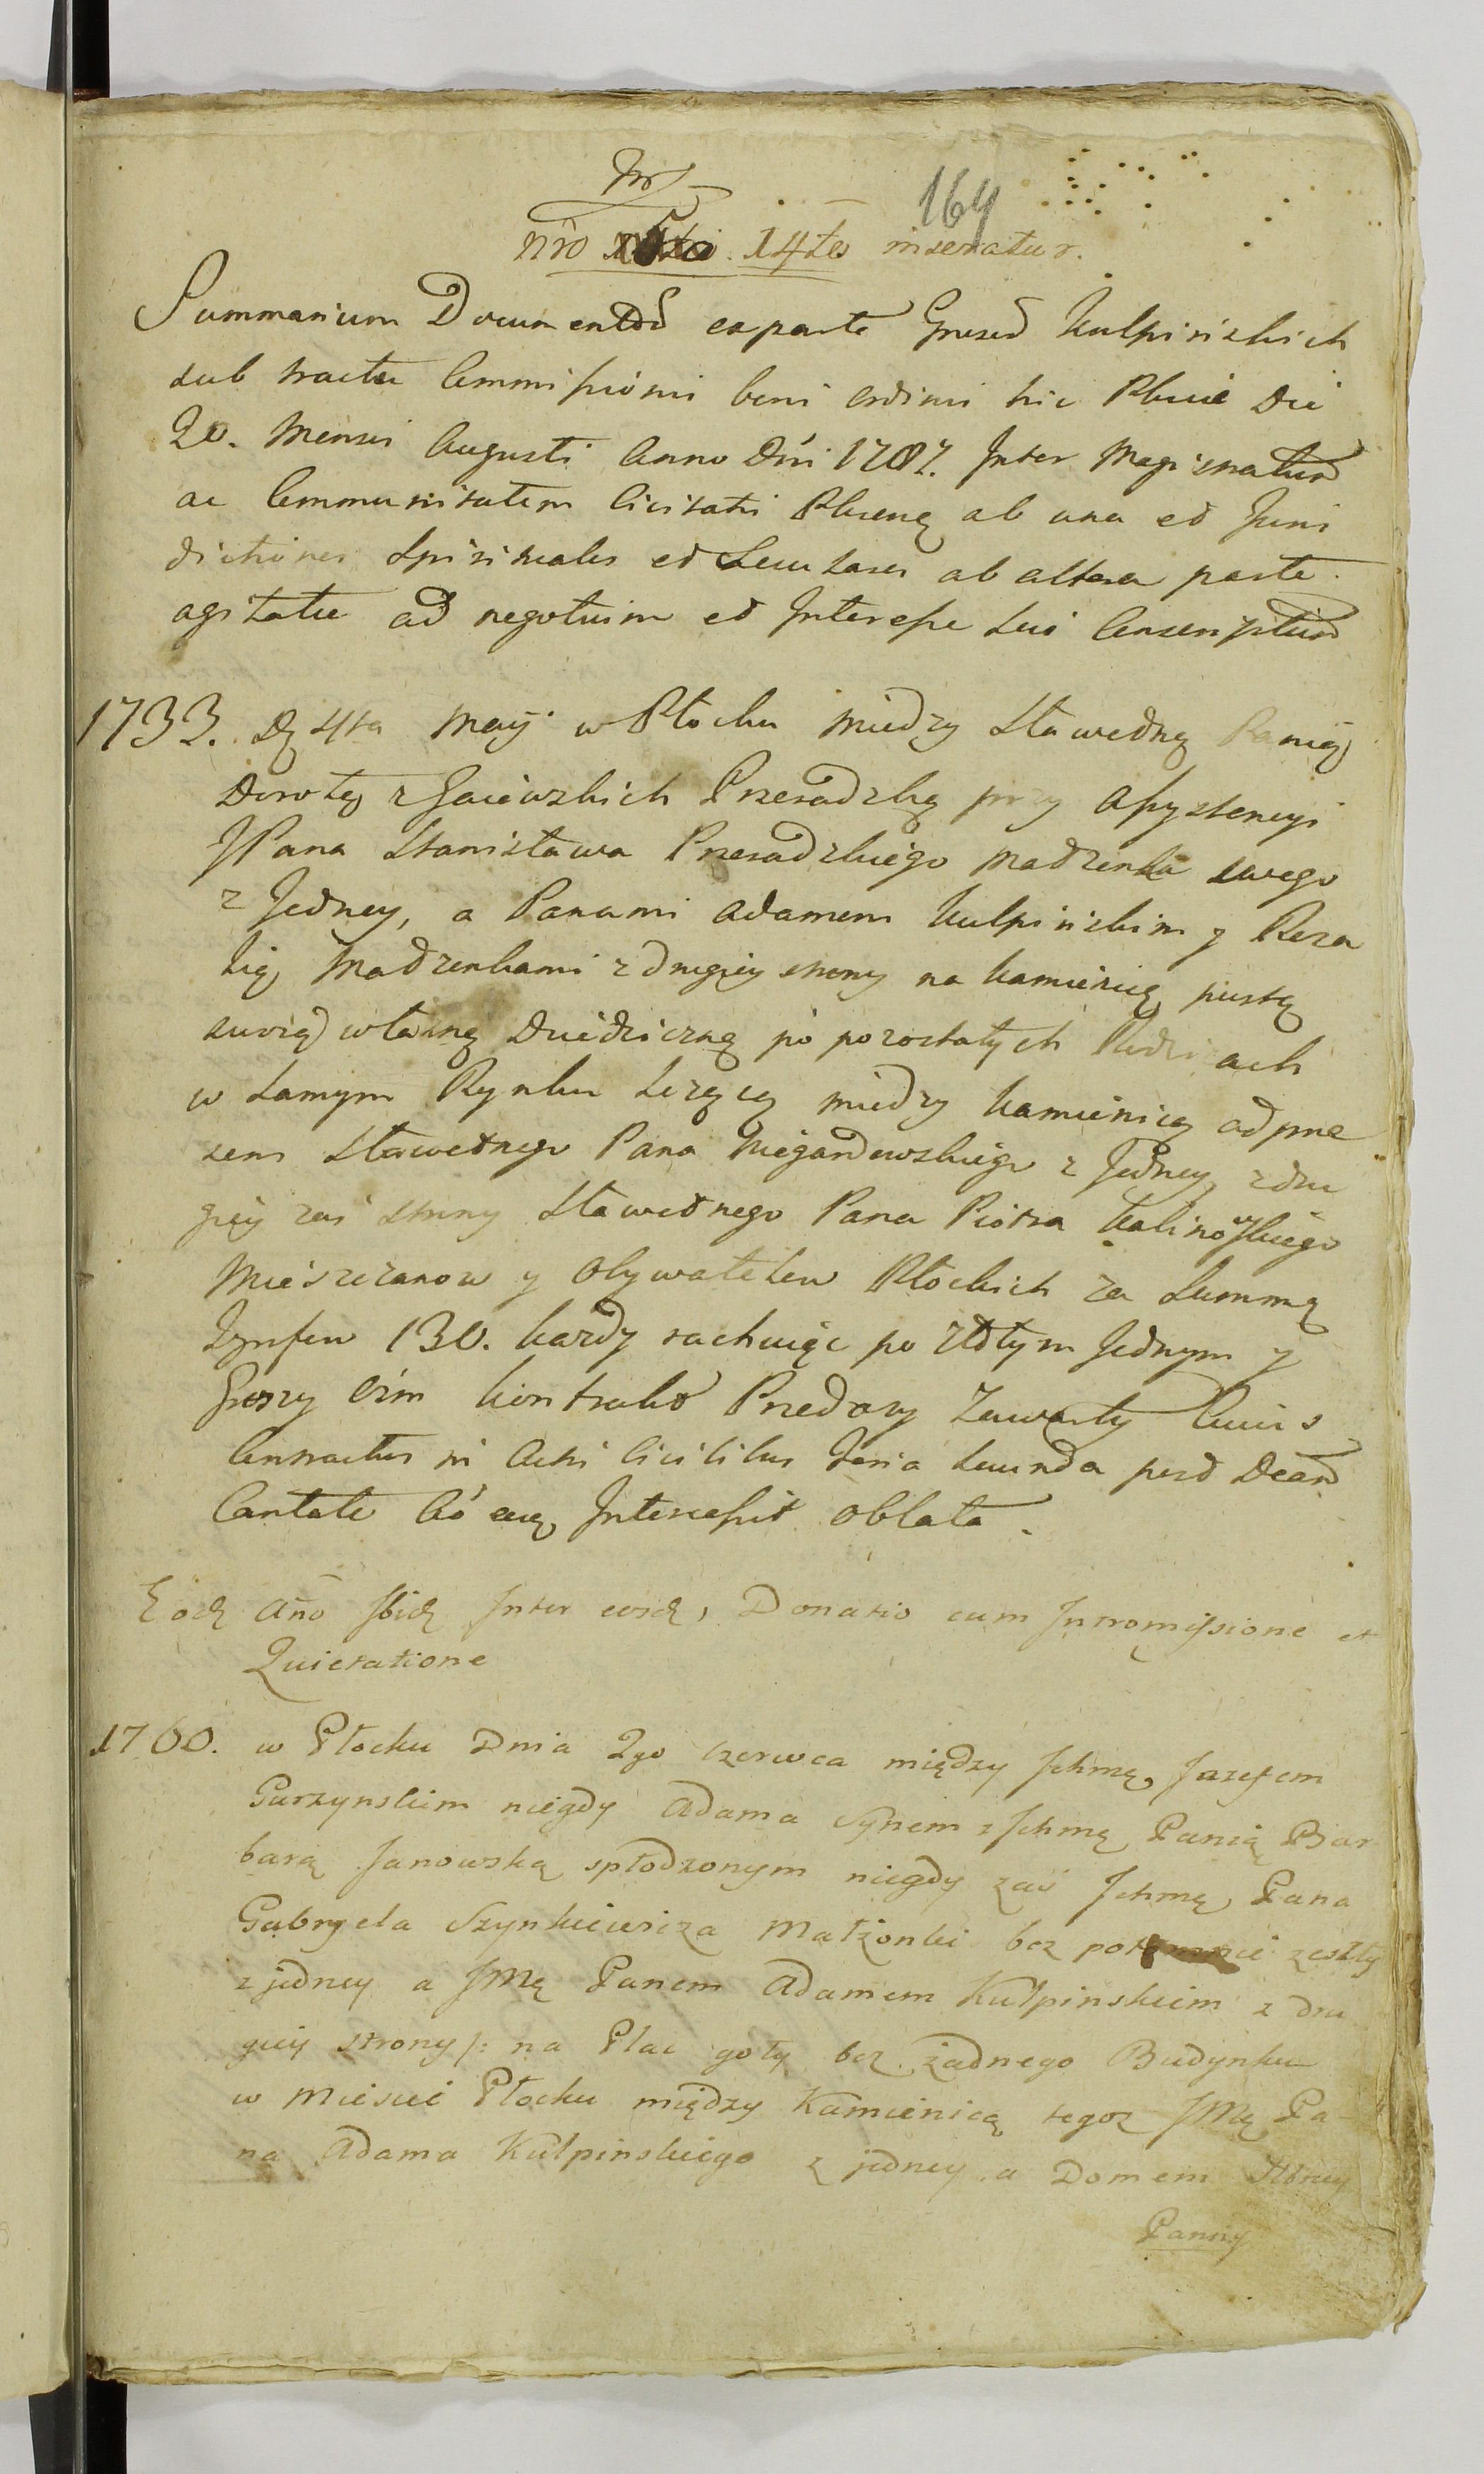 164
nro 14to inseratur.
Summarium Documentor̄ ex parte Gnesor̄ Kulpinskich
sub tractu Commissionis boni ordinis hic Plociae Die
20. Mensis Augusti Anno Dni 1787. Inter Magistratum
ac Communitatem Civitatis Plocens ab una et Juris
dictiones Spirituales et Seculares ab altera parte
agitatae ad negotium et Interesse sui Conscriptum
1733. D 4ta Maij w Płocku między Sławetną Panią
Dorotą z Gaiewskich Przeradzką przy assystencyi
JPana Stanisława Przeradzkiego Małżenka swego
z Jedney, a Panami Adamem Kulpinskim y Roza
lią Małżenkami z drugiey strony na kamienicę pustą
swoią własną Dziedziczną po pozostałych Rodzicach
w samym Rynku leżącą między kamienicą od prze
zem Sławetnego Pana Niegardowskiego z Jedney z dru
giey zas strony Sławetnego Pana Piotra Kalinowskiego
Mieszczanow y Obywatelow Płockich za Summę
Tynfow 130. każdy rachuiąc po złotym Jednym y
Groszy ośm kontrakt Przedazy zawarty Cuius
Contractus in Actis Civilibus Feria secunda post Dcam
Cantate Ao eoq Intercessit oblata.
Eodq Anno Ibidq Inter eosdq, Donatio cum Intromissione et
Quietatione
1760. w Płocku Dnia 2go czerwca między Jchmę, Jozefem
Garzynskim niegdy Adama Synem z Jchmę Panią Bar
barą Janowską spłodzonym niegdy zaś Jchmę, Pana
Gabryela Szynkiewicza Małżonki bez zeszły
z jedney a JMę Panem Adamem Kulpinskim z dru
giey strony /: na Plac goły bez żadnego Budynku
w Miescie Płocku między Kamienicą tegoz JMę Pa-
na Adama Kulpinskiego z jedney a Domem
Panny